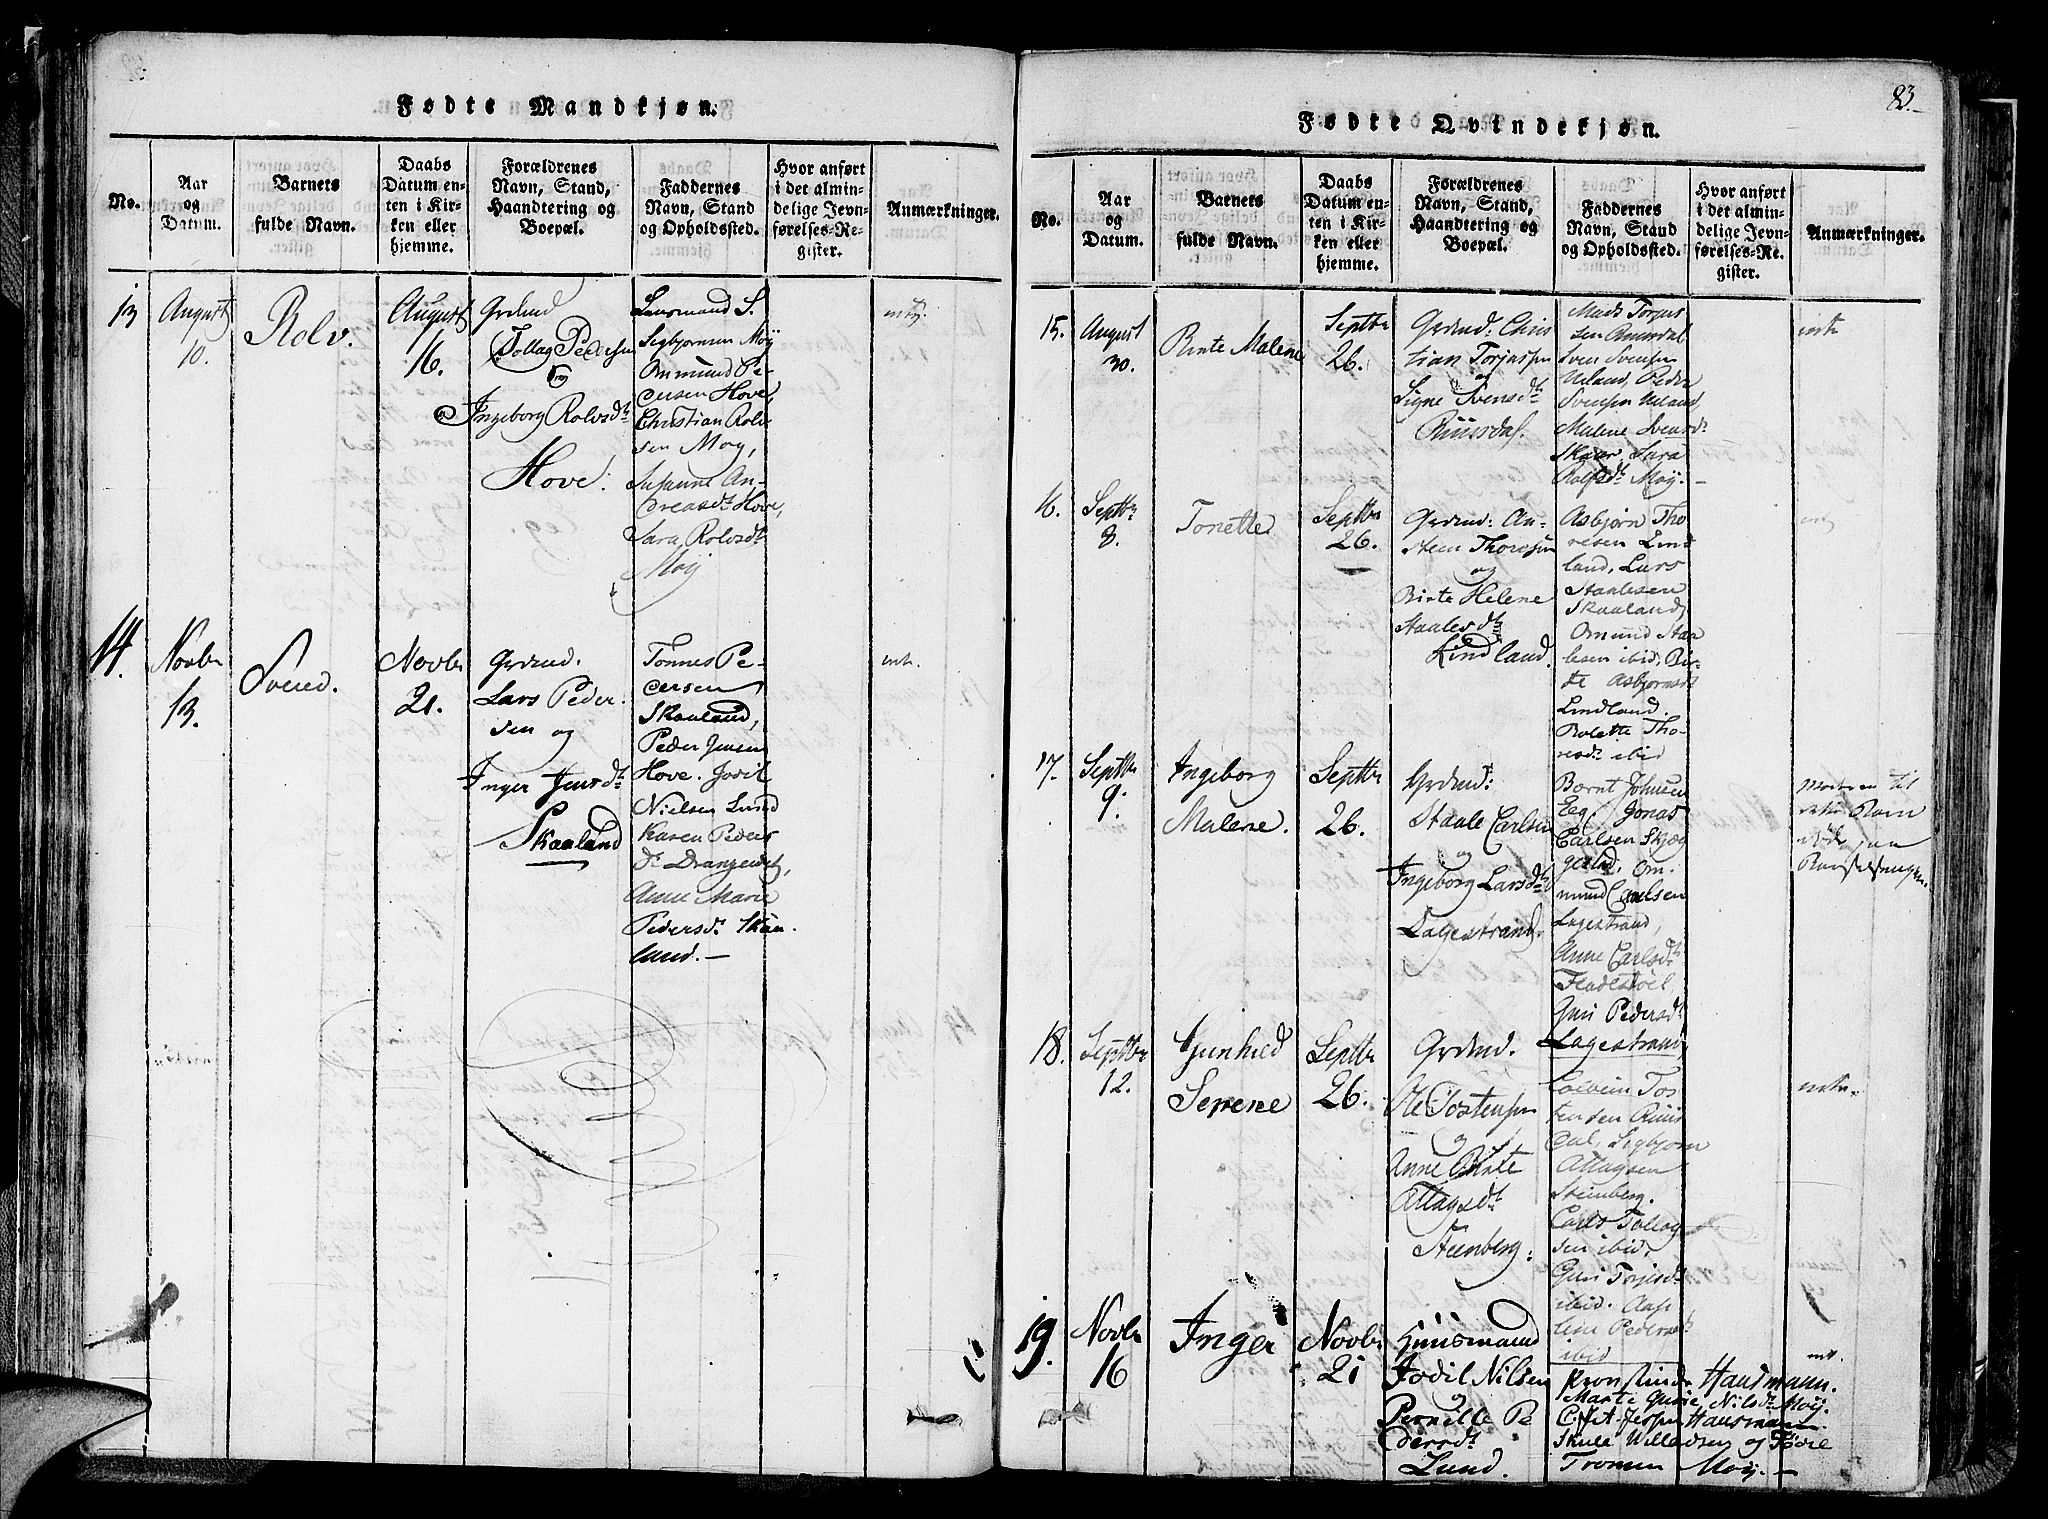 Fødte Mandkjøn.
No.
Aar
og
Datum.
Barnets
fulde Navn.
Daabs
Datum en-
ten i Kir-
ken eller
hjemme.
Forældrenes
Navn, Stand,
Haandtering og
Boepæl.
Faddernes
Navn, Stand
og Opholdssted.
Hvor anført
i det almin-
delige Jevn-
førelses-Re-
gister.
Anmærkninger.
13
August
10.
Rolv.
August
16.
Grdmd
Tollag Pedersen
og
Ingeborg Rolvsdt
Hove.
Lensmand S.
Segbjørnsen Moÿ
Ommund Pe-
dersen Hove,
Christian Rolv
sen Moÿ,
Susanne An-
dreasdt Hove,
Sara Rolvsdt
Moÿ
14.
Novbr
13.
Svend.
Novbr
21.
Grdmd.
Lars Peder
sen og
Inger Jensdt
Skaaland
Tønnes Pe-
dersen
Skaaland,
Peder Jensen
Hove. Jodil
Nielsen Lund
Karen Peders
dt Drangeidet,
Anne Marie
Pedersdt Skaa-
land.—
83.
Fødte Qvindekjøn.
No.
Aar
og
Datum.
Barnets
fulde Navn.
Daabs
Datum en-
ten i Kir-
ken eller
hjemme.
Forældrenes
Navn, Stand,
Haandtering og
Boepæl.
Faddernes
Navn, Stand
og Opholdssted.
Hvor anført
i det almin-
delige Jevn-
førelses-Re-
gister.
Anmærkninger.
15.
August
30.
Birte Malene
Septbr
26.
Grdmd: Chris
tian Torjussen
og
Signe Svensdt
Ruusdal.
Mads Torjus
sen Ruusdal
Sven Svensen
Ueland, Peder
Svensen Ueland,
Malene Svensdt
Skaar, Sara
Rolfsdt Moÿ.—
16.
Septbr
8.
Tonette
Septbr
26.
Grdmd: An-
steen Thoresen
og
Birte Helene
Staalesdt
Lindland.
Asbjørn Tho
resen Lind
land, Lars
Staalesen
Skaaland,
Omund Staa
lesen ibid, Bir-
te Asbjørnsdt
Lindland.
Rolette Tho-
resdt ibid
17.
Septbr
9.
Ingeborg
Malene.
Septbr
26.
Grdmd:
Staale Carlsen
og
Ingeborg Larsdt
Lagestrand.
Bernt Johnsen
Eeg, Jonas
Carlsen Skjæg
gestad. Om-
mund Carlsen
Lagestrand,
Anne Carlsdt
Guri Pedersdt
Lagestrand,
Moderen til
dette Barn
døde paa
Barselsengen.
18.
Septbr
12.
Gunhild
Serene
Septbr
26.
Grdmd.
Ole Tostensen
og
Anne Birte
Attagsdt
Steenberg.
Tolvein Tos-
tensen Ruus
dal, Segbjørn
Attagsen
Steenberg.
Carls Tollag
sen ibid,
Guri Torjesdt
ibid. Aase
line Pedersdt
ibid
19.
Novbr
16
Inger
Novbr
21
Huusmand
Jodil Nilsen
og
Pernille Pe
dersdt
Lund.
Hausmann.
Marte Gurie Nilsdt Moÿ.
Hausmann
Skule Willadsen og Tore
Tromm Moÿ.—